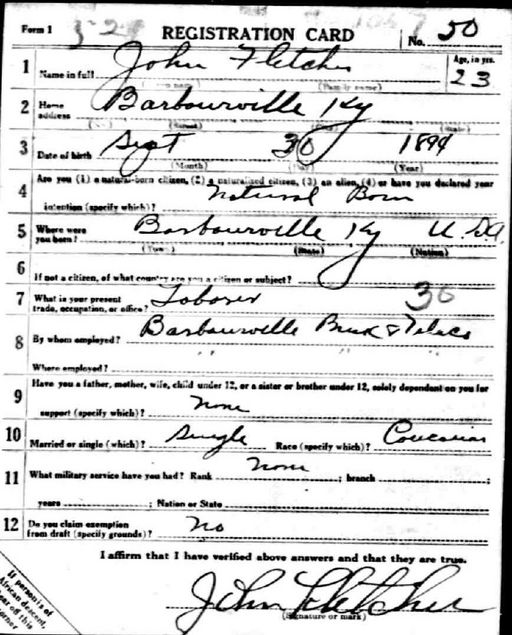 Form 1 REGISTRATION CARD No. 50
1 Name in full John Fletcher Age, in yrs. 23
(Family name)
2 Home address Barbourville Ky
(No.) (Street) (City) (State)
3 Date of birth Sept 30 1894
(Month) (Day) (Year)
4 Are you (1) a natural-born citizen, (2) a naturalized citizen, (3) an alien, (4) or have you declared your
intention (specify which)? Natural Born
5 Where were you born? Barbourville Ky U.S.A.
(Town) (State) (Nation)
6 If not a citizen, of what country are you a citizen or subject?
7 What is your present trade, occupation, or office? Laborer 30
8 By whom employed? Barbourville Brick &
Where employed? " "
9 Have you a father, mother, wife, child under 12, or a sister or brother under 12, solely dependent on you for
support (specify which)? None
10 Married or single (which)? Single Race (specify which)? Caucasian
11 What military service have you had? Rank None ; branch ;
years ; Nation or State
12 Do you claim exemption from draft (specify grounds)? No
I affirm that I have verified above answers and that they are true.
John Fletcher
(Signature or mark)
If person is of
African descent,
off this
corner